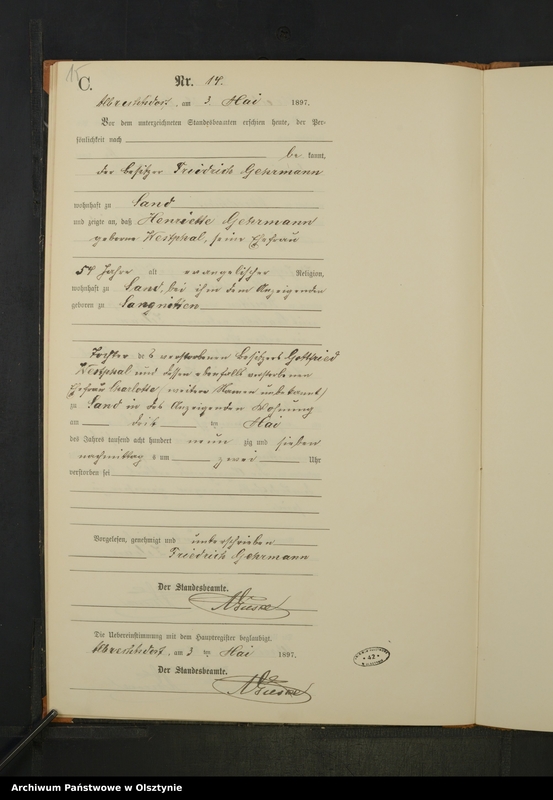 15
C.
Nr. 14.
Albrechtsdorf, am 3. Mai 1897.
Vor dem unterzeichneten Standesbeamten erschien heute, der Per-
sönlichkeit nach
be kannt,
der Besitzer Friedrich Gehrmann
wohnhaft zu Sand
und zeigte an, daß Henriette Gehrmann
geborne Westphal, seine Ehefrau
54 Jahre alt evangelischer Religion,
wohnhaft zu Sand, bei ihm dem Anzeigenden
geboren zu Sangnitten
Tochter des verstorbenen Besitzers Gottfried
Westphal und dessen ebenfalls verstorbenen
Ehefrau Charlotte (weitere Namen unbekannt)
zu Sand in des Anzeigenden Wohnung
am drei ten Mai
des Jahres tausend acht hundert neun zig und sieben
nachmittag s um zwei Uhr
verstorben sei
Vorgelesen, genehmigt und unterschrieben
Friedrich Gehrmann
Der Standesbeamte.
Die Uebereinstimmung mit dem Hauptregister beglaubigt.
Albrechtsdorf, am 3 ten Mai 1897.
Der Standesbeamte.
* 42 *
Archiwum Państwowe w Olsztynie